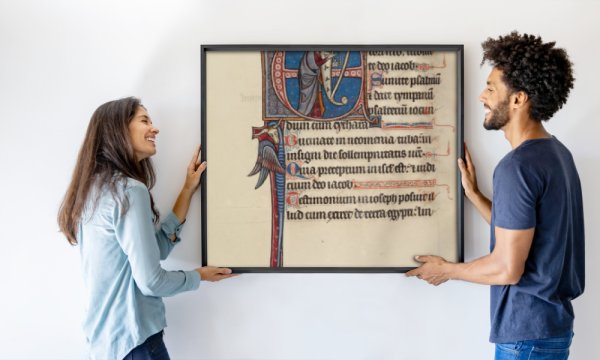 te deo iacob.
Sumite psalmū
⁊ date tympanū
psalteriū iocun
dum cum cythara
Bucinate in neomenia tuba: in
insigni die sollempnitatis
Quia preceptum in isrł est: ⁊ iudi
cium deo iacob
Testimonium in ioseph posuit il
lud cum exiret de terra egypti: lin